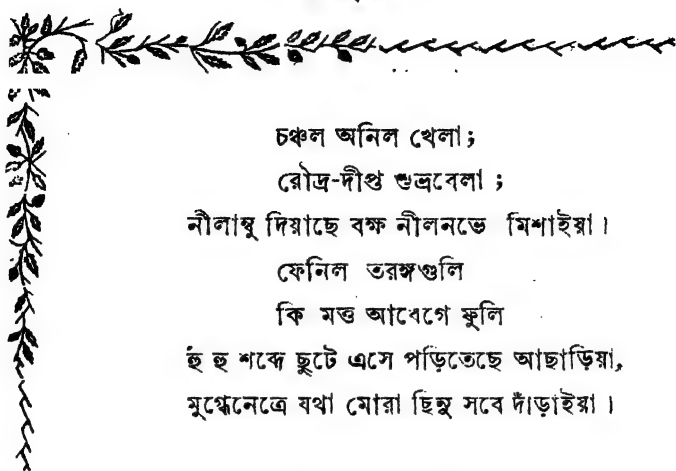 চঞ্চল অনিল খেলা;
রৌদ্র-দীপ্ত শুভ্রবেলা;
নীলাম্বু দিয়াছে বক্ষ নীলনভে মিশাইয়া।
ফেনিল তরঙ্গগুলি
কি মত্ত আবেগে ফুলি
হুঁ হু শব্দে ছুটে এসে পড়িতেছে আছাড়িয়া,
মুগ্ধেনেত্রে যথা মোরা ছিনু সবে দাঁড়াইয়া।